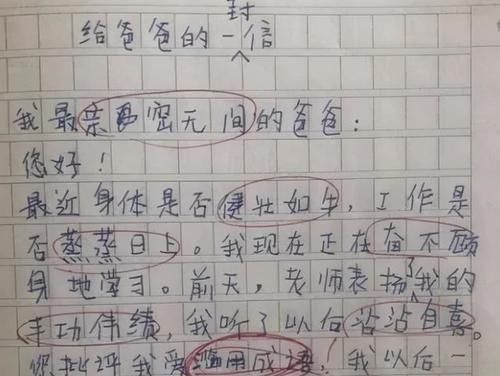 给爸爸的一封信
我最亲密无间的爸爸：
您好！
最近身体是否健壮如牛，工作是
否蒸蒸日上。我现在正在奋不顾
身地学习。前天，老师表扬了我的
丰功伟绩，我听了以后沾沾自喜。
批评我爱滥用成语！我以后一